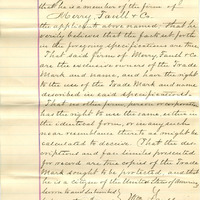 that he is a member of the firm of
Merry, Tanell & Co.
the applicant above named. That he
verily believes that the facts set forth
in the foregoing specification are true
That said firm of Merry, Tanell & Co
are the exclusive owners of the Trade
Mark and name, and have the right
to the use of the Trade Mark and name
described in said specification.
That no other firm, person or corporation
has the right to use the same either in
the identical form, or in any such
near resemblance thereto as might be
calculated to deceive. That the de-
scriptions and fac similes presented
for record are true copies of the Trade
Mark sought to be protected, and that
he is a citizen of the United States of America